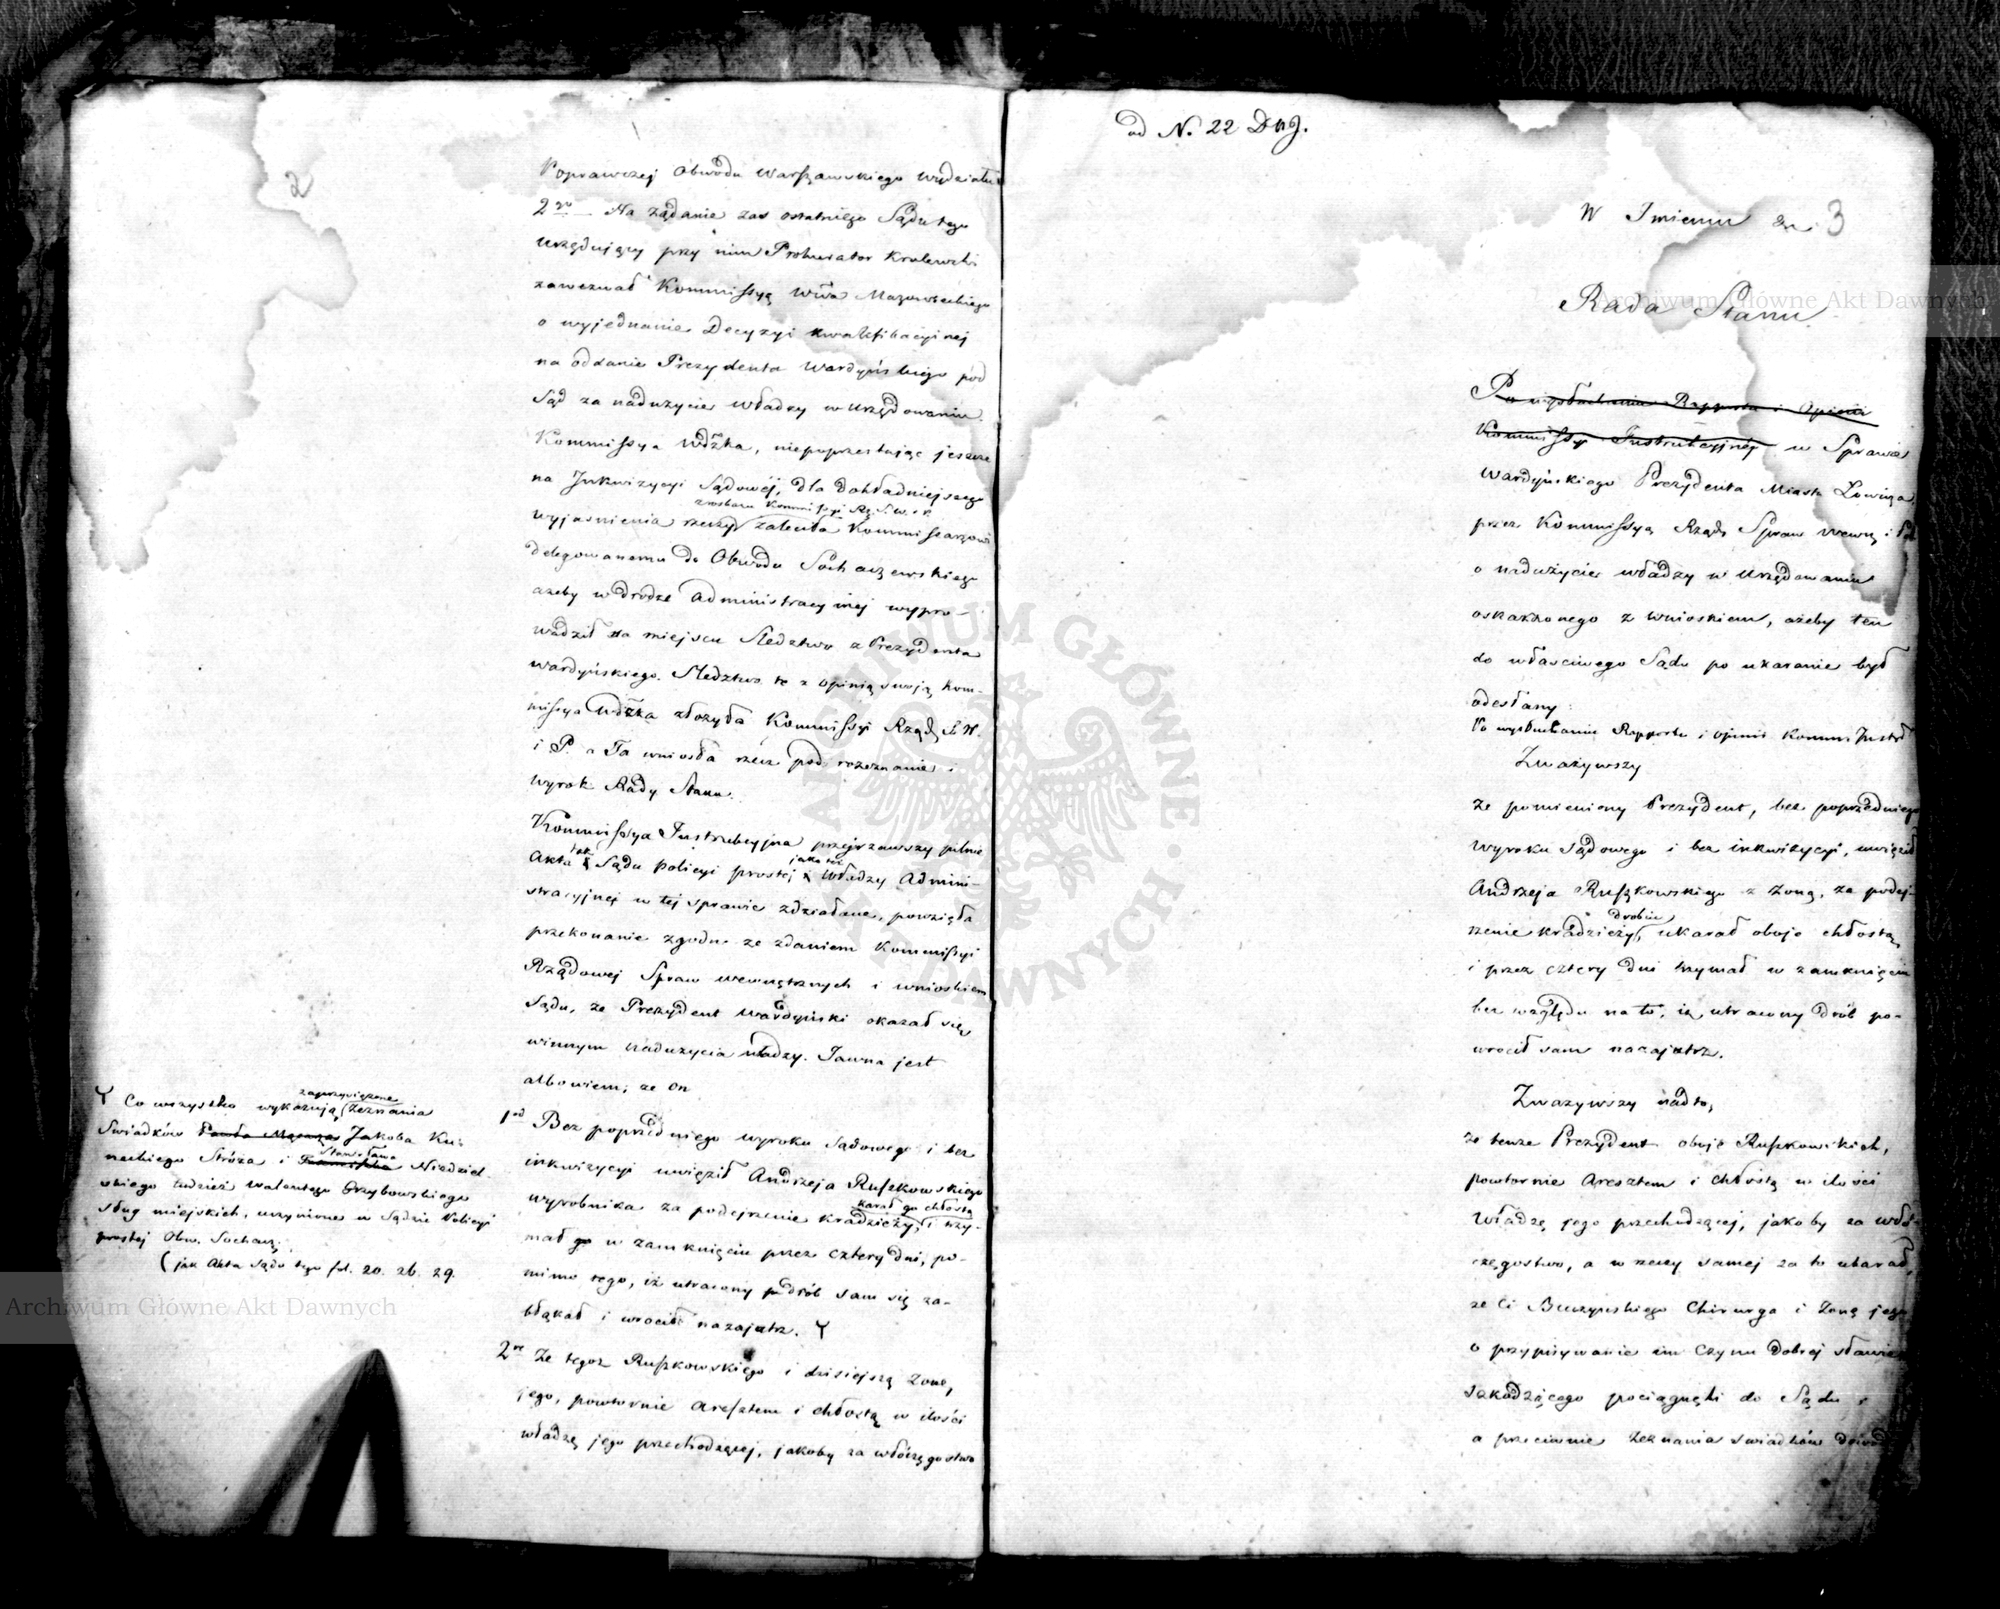 2
Poprawczej Obwodu Warszawskiego Wydziału
2go – Na żądanie zaś ostatniego Sądu tego
Urzędujący przy nim Prokurator Krolewski
zawezwał Kommissyą Wwa Mazowieckiego
o wyjednanie Decyzyi kwalifikacyinej
na oddanie Prezydenta Wardyńskiego pod
Sąd za nadużycie władzy w Urzędowaniu.
Kommissya Wdzka, niepoprzestając jeszcze
na Inkwizycyi Sądowéj, dla dokładniejszego
z rozkazu Kommissyi Rz. S. W. i P.
wyjasnienia rzeczy zaleciła Kommissarzowi
delegowanemu do Obwodu Sochaczewskiego
ażeby w drodze administracyinej wypro-
wadził na miejscu Sledztwo z Prezydenta
Wardyńskiego. Sledztwo te z opinią swoją Kom-
missya Wdzka złożyła Kommissyi Rządz. S. W.
i P. a Ta wniosła rzecz pod rozeznanie i
wyrok Rady Stanu.
Kommissya Instrukcyjna przejrzawszy pilnie
Akta tak Sądu policyi prostej jako też Władzy Admini-
stracyjnej w tej sprawie zdziałane, powzięła
przekonanie zgodne ze zdaniem Kommissyi
Rządowej Spraw Wewnętrznych i wnioskiem
Sądu, że Prezydent Wardyński okazał się
winnym nadużycia władzy. Jawna jest
albowiem, że on
1od Bez poprzedniego wyroku Sądowego i bez
inkwizycyi uwięził Andrzeja Ruszkowskiego
wyrobnika za podejrzenie kradzieży, karał go chłostą i trzy-
mał go w zamknięciu przez cztery dni, po-
mimo tego, iż utracony drób sam się za-
błąkał i wrocił nazajutrz. Y
2re Że tegoż Ruszkowskiego i dzisiejszą żonę
jego, powtornie Aresztem i chłostą w ilości
władzę jego przechodzącej, jakoby za włóczęgostwo
Y Co wszystko wykazują zaprzysiężone Zeznania
Swiadków Jakoba Ku-
neckiego Stróża i Stanisława Niedziel-
skiego tudzież Walentego Grzybowskiego
sług miejskich, uczynione w Sądzie Policyi
prostej Obw. Sochacz.
(jak Akta Sądu tego fol. 20. 26. 29.
ad N. 22 Dng.
W Imieniu 3
Rada Stanu
Po wysłuchaniu Rapportu i Opinii
Kommissyi Instrukcyjnéj w Sprawie
Wardyńskiego Prezydenta Miasta Łowicza
przez Kommissyą Rządz Spraw Wewnę i Pol
o nadużycie władzy w Urzędowaniu
oskarżonego z wnioskiem, ażeby ten
do właściwego Sądu po ukaranie był
odesłany:
Po wysłuchaniu Rapportu i opinii Komm. Instr
Zważywszy
że pomieniony Prezydent, bez poprzedniego
wyroku Sądowego i bez inkwizycyi, uwięził
Andrzeja Ruszkowskiego z żoną, za podej-
rzenie kradzieży drobiu, ukarał oboje chłostą,
i przez cztery dni trzymał w zamknięciu
bez względu na to, iż utracony drób po-
wrocił sam nazajutrz.
Zważywszy nadto,
że tenże Prezydent oboje Ruszkowskich,
powtornie Aresztem i chłostą w ilości
Władzę jego przechodzącej, jakoby za włó-
częgostwo, a w rzeczy samej za to ukarał,
że Ci Buczyńskiego Chirurga i Żonę jego
o przypisywanie im Czynu dobrej sławie
szkodzącego pociągnęli do Sądu,
a przeciwnie Zeznania swiadków
Archiwum Główne Akt Dawnych
Archiwum Główne Akt Dawnych
ARCHIWUM GŁÓWNE AKT DAWNYCH